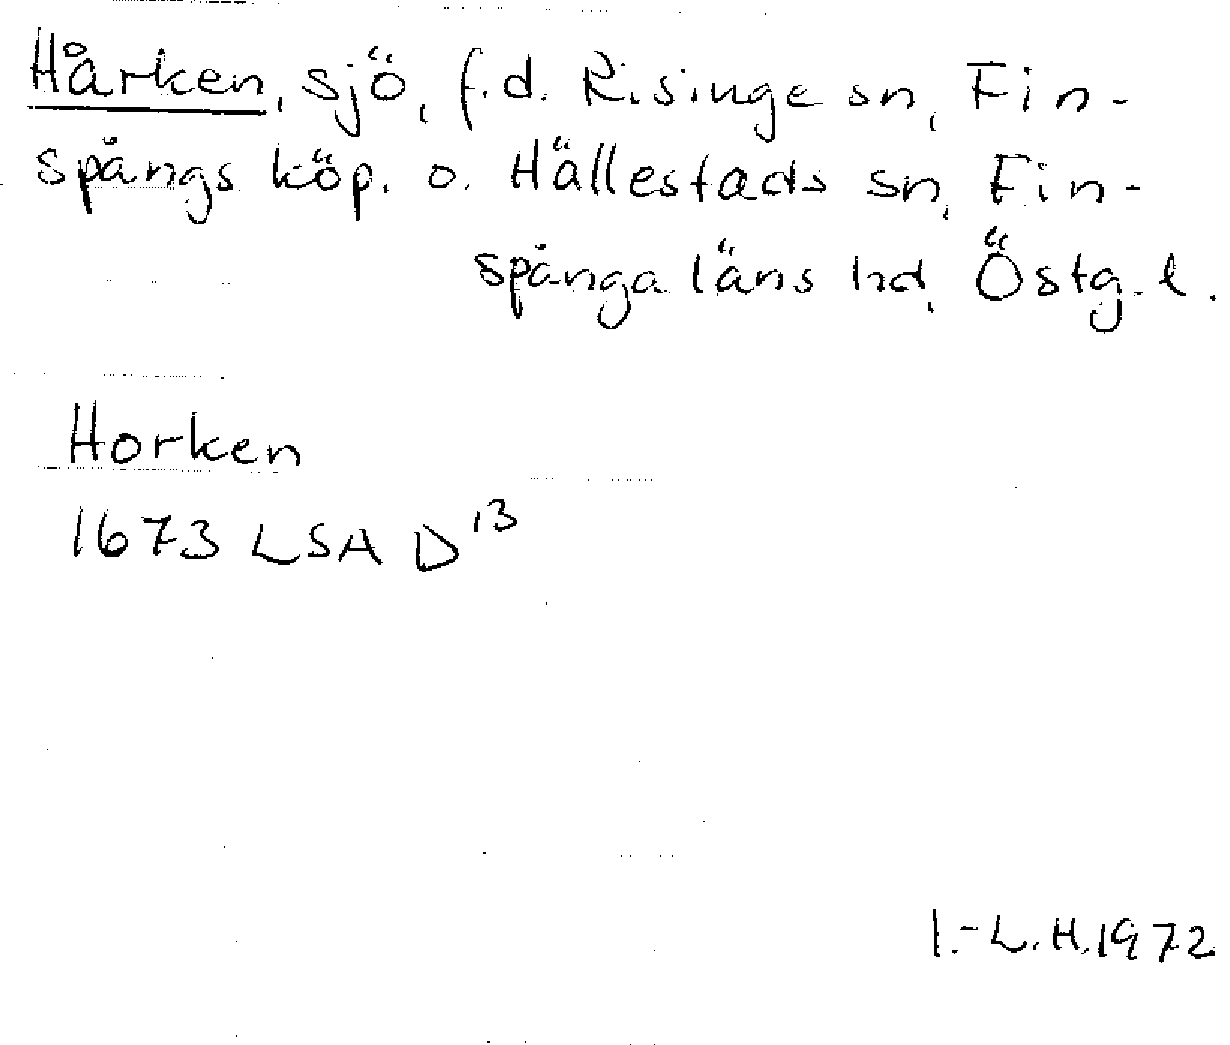 Hårken, sjö, f.d. Risinge sn, Fin-
spångs köp. o. Hällestads sn, Fin-
spånga läns hd, Östg. l.
Horken
1673 LSA D¹³
I.-L.H.1972